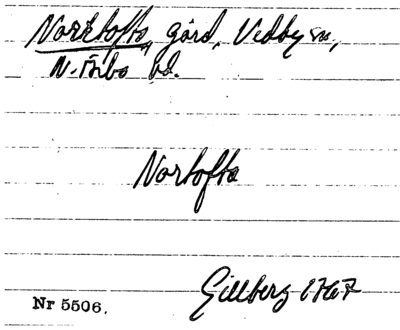 Norrtofta, gård, Vedby sn,
N. Åsbo hd.
Nortofta
Gillberg 1767
Nr 5506.